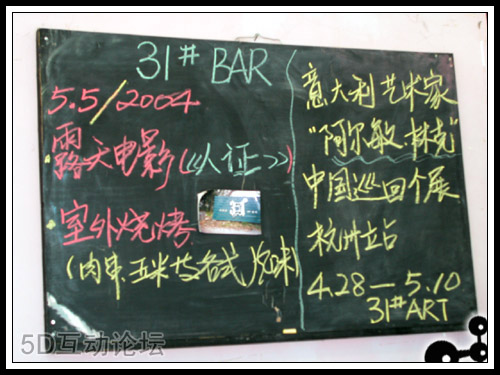 31# BAR
5.5/2004
露天电影(《人证》)
室外烧烤
(肉串.玉米及各式烧味)
意大利艺术家
"阿尔敏.林克"
中国巡回个展
杭州立占
4.28—5.10
31# ART
5D互动论坛